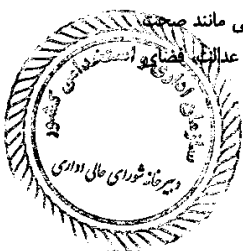 ی مانند صحت
عدالت قضای
سازمان اداری و استخدامی کشور
دبیرخانه شورای عالی اداری